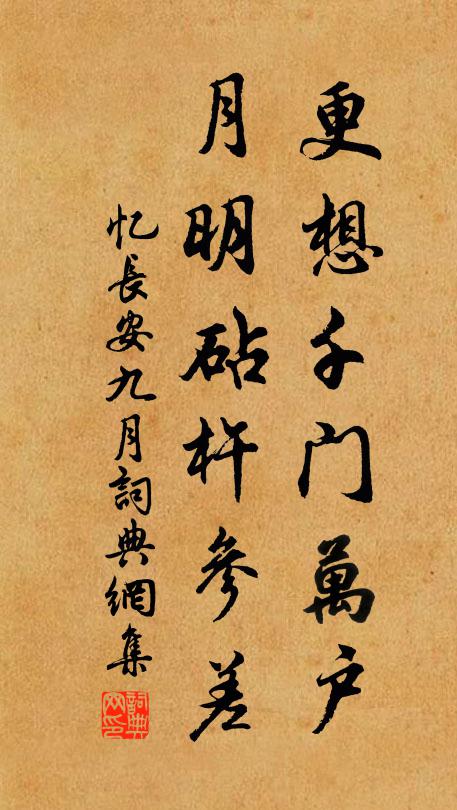 更想千门萬户
月明砧杵參差
忆長安九月詞典網集
詞典网印